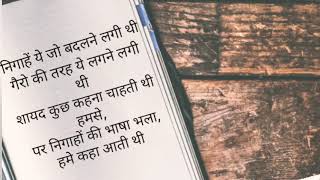 निगाहें ये जो बदलने लगी थी
गैरो की तरह ये लगने लगी
थी
शायद कुछ कहना चाहती थी
हमसे,
पर निगाहों की भाषा भला,
हमे कहा आती थी